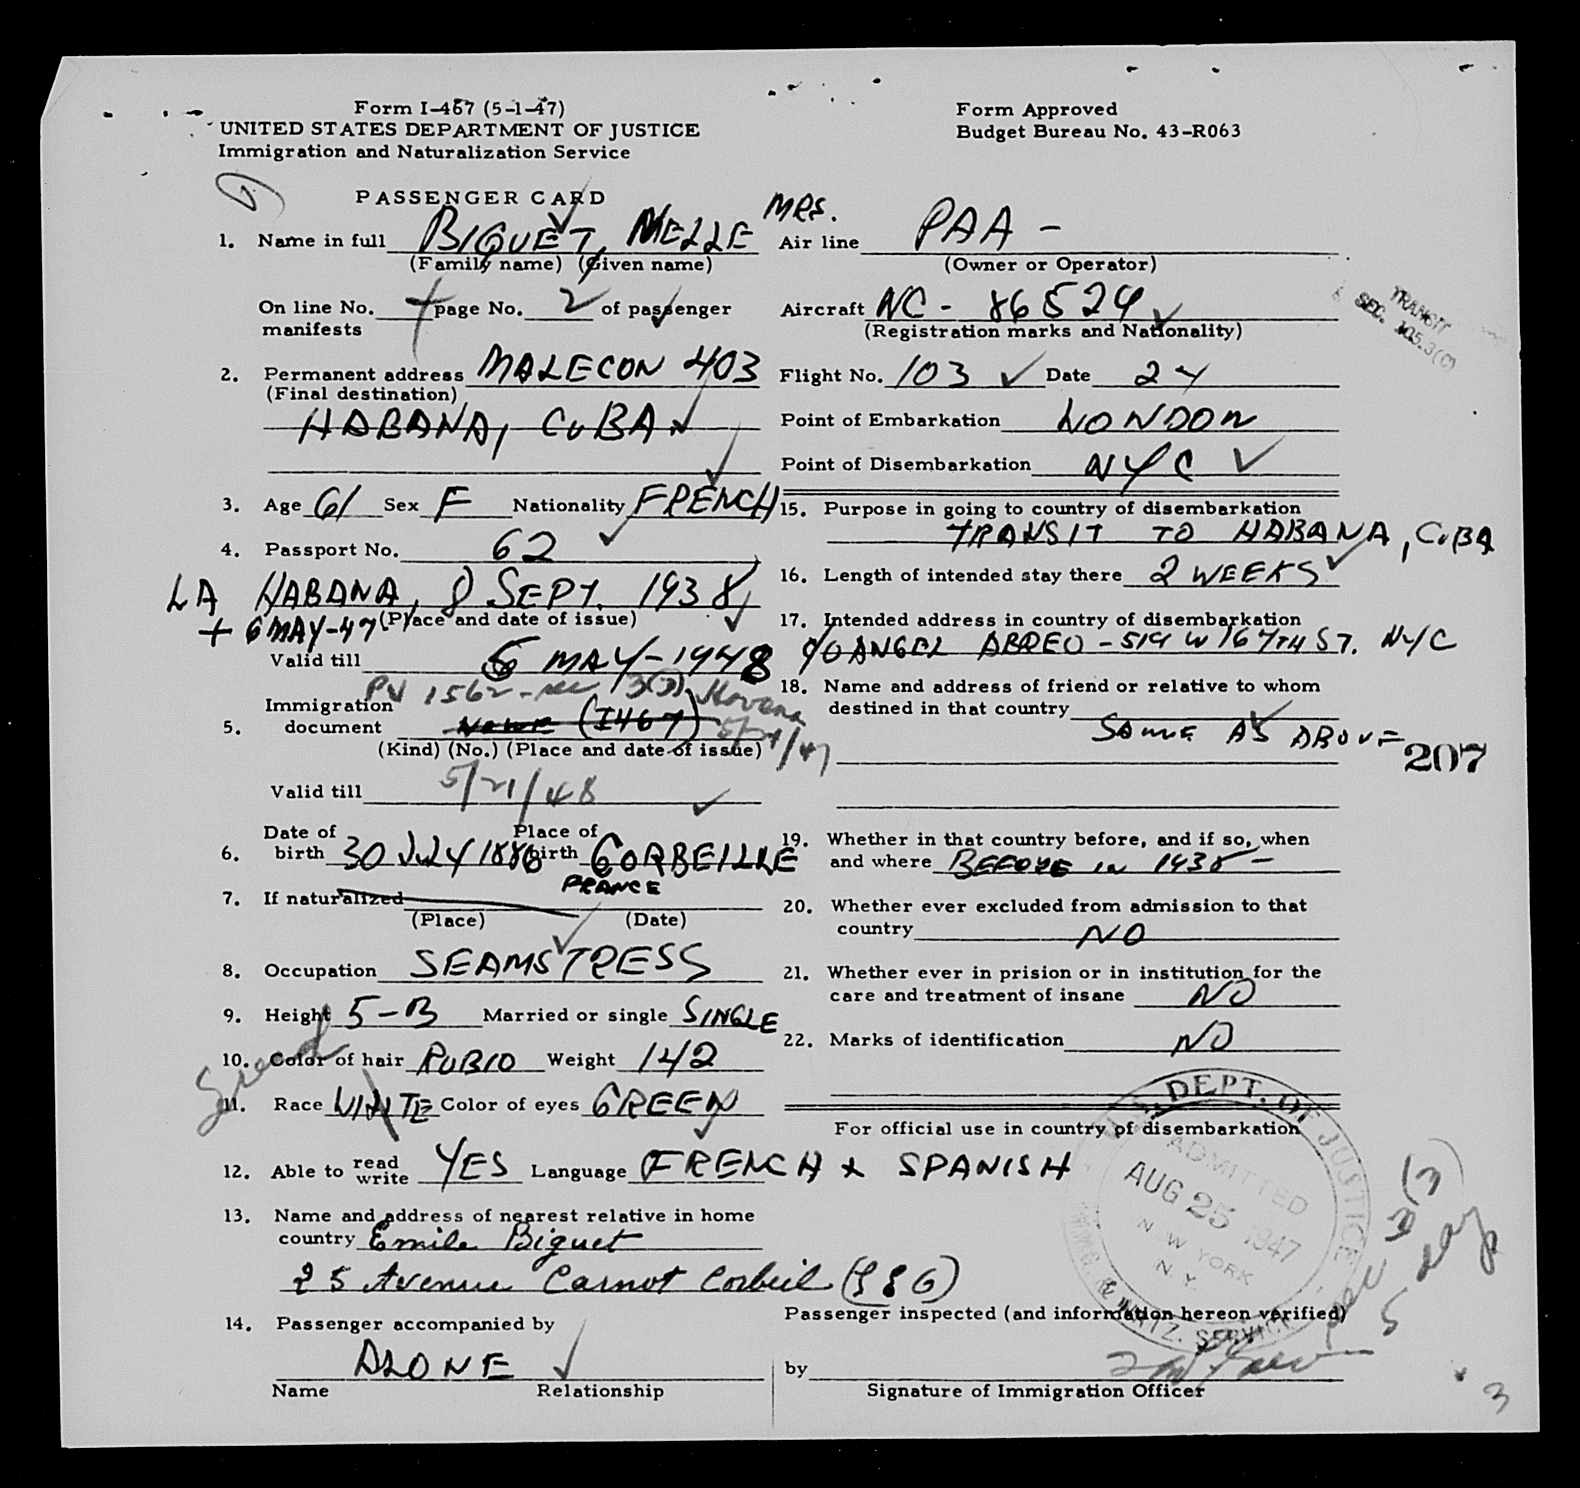 Form I-467 (5-1-47)
UNITED STATES DEPARTMENT OF JUSTICE
Immigration and Naturalization Service
Form Approved
Budget Bureau No. 43-R063
PASSENGER CARD
1. Name in full BIQUET, MELLE MRS.
(Family name) (Given name)
On line No. page No. 2 of passenger
manifests
2. Permanent address MALECON 403
(Final destination)
HABANA, CUBA
3. Age 61 Sex F Nationality FRENCH
4. Passport No. 62
LA HABANA, 8 SEPT. 1938
+ 6 MAY-47 (Place and date of issue)
Valid till 6 MAY-1948
PV 1562-sec 3(3) Havana
Immigration
5. document None (I467) 5/21/47
(Kind) (No.) (Place and date of issue)
Valid till 5/21/48
6. Date of birth 30 JULY 1886 Place of birth CORBEILLE
FRANCE
7. If naturalized
(Place) (Date)
8. Occupation SEAMSTRESS
9. Height 5-3 Married or single SINGLE
10. Color of hair RUBIO Weight 142
11. Race WHITE Color of eyes GREEN
12. Able to read write YES Language FRENCH & SPANISH
13. Name and address of nearest relative in home
country Emile Biguet
25 Avenue Carnot Corbeil (S&O)
14. Passenger accompanied by
ALONE
Name Relationship
Air line PAA -
(Owner or Operator)
Aircraft NC - 86524
(Registration marks and Nationality)
TRANSIT
SEC. 105.3(C)
Flight No. 103 Date 24
Point of Embarkation LONDON
Point of Disembarkation NYC
15. Purpose in going to country of disembarkation
TRANSIT TO HABANA, CUBA
16. Length of intended stay there 2 WEEKS
17. Intended address in country of disembarkation
c/o ANGEL ABREO - 519 W 167TH ST. NYC
18. Name and address of friend or relative to whom
destined in that country
SAME AS ABOVE
207
19. Whether in that country before, and if so, when
and where BEFORE in 1938 -
20. Whether ever excluded from admission to that
country NO
21. Whether ever in prision or in institution for the
care and treatment of insane NO
22. Marks of identification NO
For official use in country of disembarkation
U.S. DEPT. OF JUSTICE
ADMITTED
AUG 25 1947
NEW YORK
N. Y.
IMMIG. & NATZ. SERVICE
sec 3(3)
5 day
Passenger inspected (and information hereon verified)
by
Signature of Immigration Officer
3